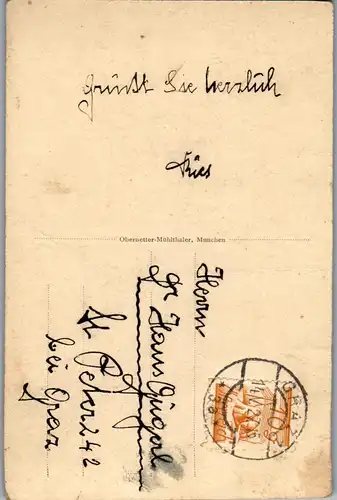 grüßt Sie herzlich
Ries
Obernetter-Mühlthaler, Munchen
Herrn
Hans Gügerl
St Peter 242
bei Graz
GRAZ
10g